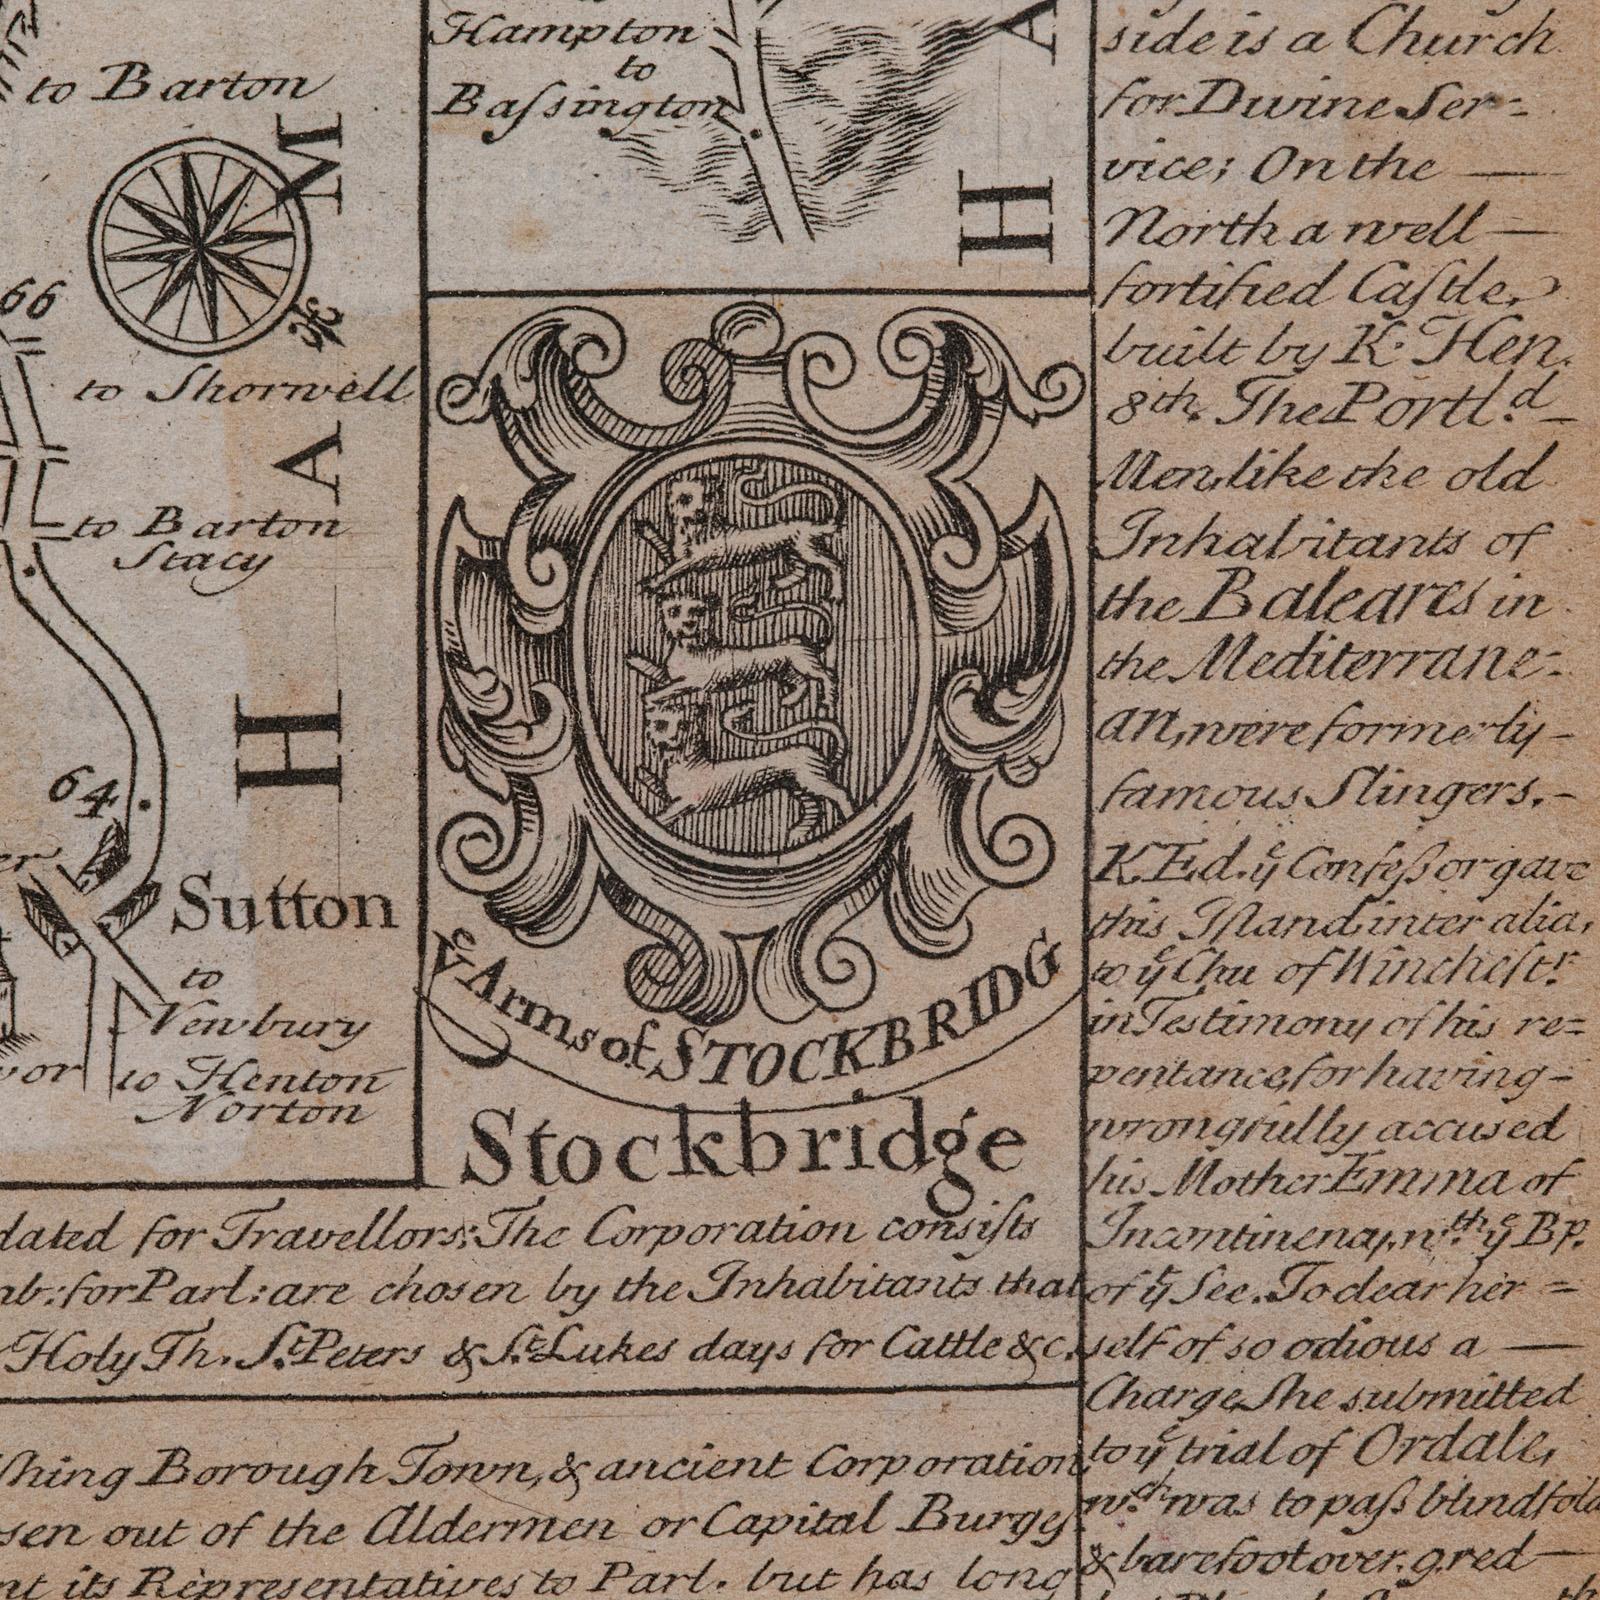 to Barton
M
66
to Shorwell
A
to Barton
Stacy
H
64
Sutton
to
Newbury
to Henton
Norton
Hampton
to
Baſsington
A
H
yͤ Arms of STOCKBRIDG
Stockbridge
dated for Travellors; The Corporation consiſts
mb: for Parl: are chosen by the Inhabitants that
Holy Th. Sᵗ. Peters & Sᵗ. Lukes days for Cattle &c.
ſhing Borough Town, & ancient Corporation
sen out of the Aldermen or Capital Burgeſ
nt its Representatives to Parl. but has long
side is a Church
for Divine Ser-
vice; On the
North a well
fortified Caſtle,
built by K. Hen.
8th. The Portl.ᵈ
Men, like the old
Inhabitants of
the Baleares in
the Mediterrane-
an, were formerly
famous Slingers.
K Ed. yͤ Confeſsor gave
this Iſland, inter alia,
to yͤ Chu of Wincheſtʳ.
in Testimony of his re=
pentance, for having
wrongfully accused
his Mother Emma of
Incontinency, wᵗʰ. yͤ Bp.
of yͤ See. To clear her
self of so odious a
Charge She submitted
to yͤ trial of Ordale,
wᶜʰ was to paſs blindfold
& barefoot over. 9. red